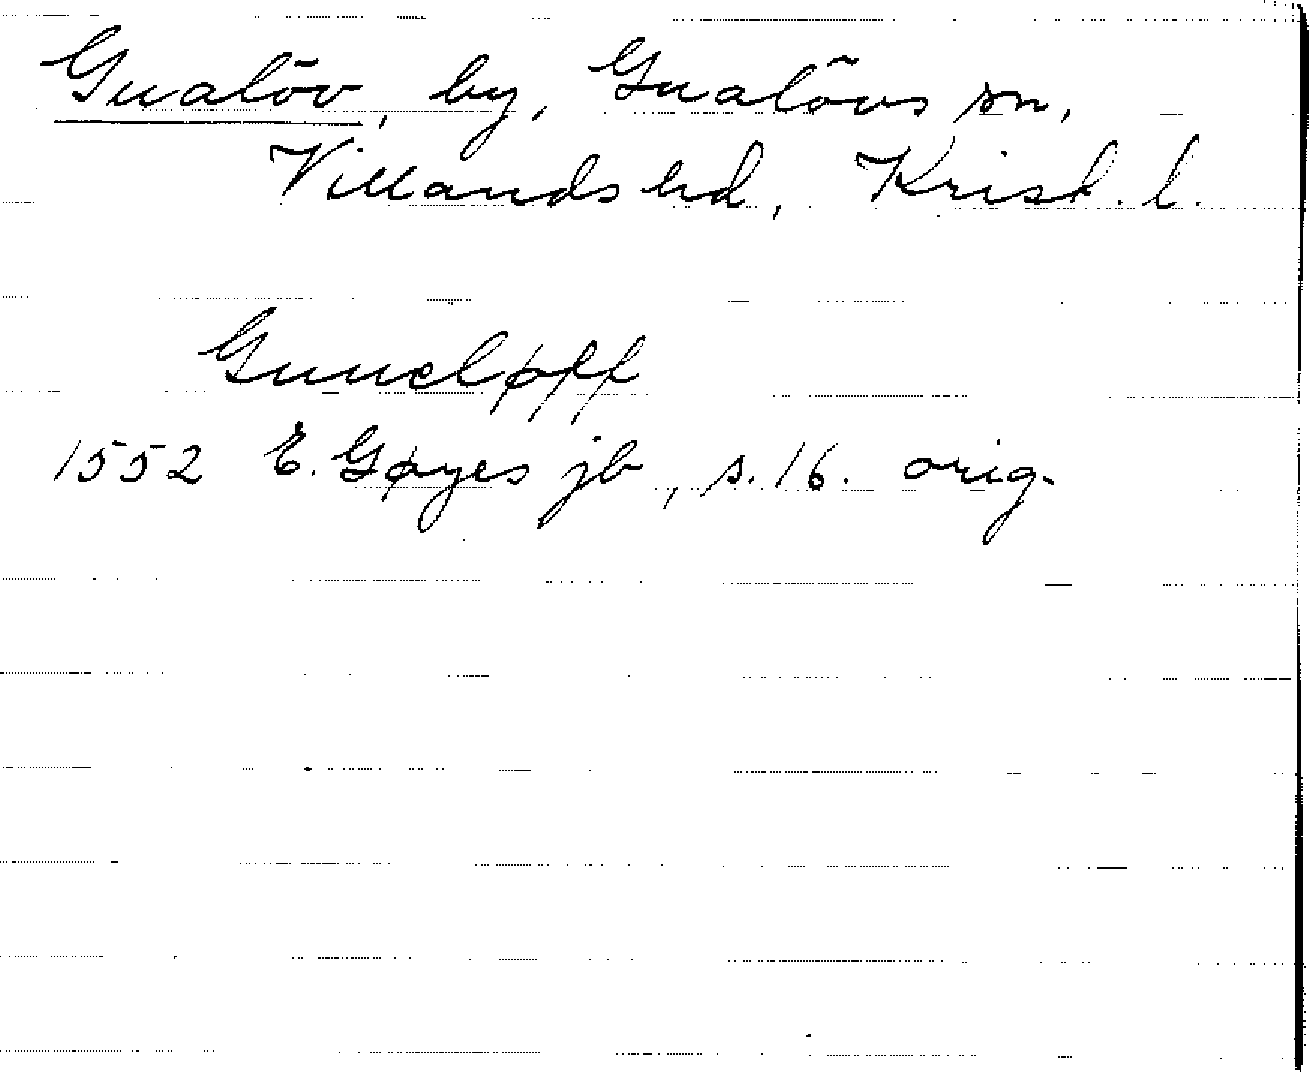 Gualöv, by, Gualövs sn,
Villands hd, Krist. l.
Guueløff
1552 E. Gøyes jb, s. 16. orig.